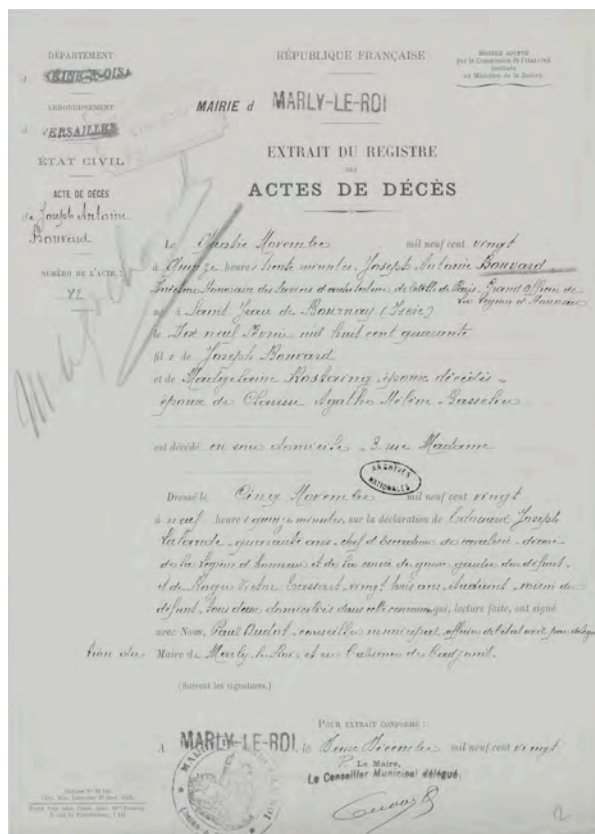 DÉPARTEMENT
d SEINE-&-OISE
ARRONDISSEMENT
d VERSAILLES
ÉTAT CIVIL
ACTE DE DÉCÈS
de Joseph Antoine
Bouvard
NUMÉRO DE L'ACTE :
82
RÉPUBLIQUE FRANÇAISE
MODÈLE ADOPTÉ
par la Commission de l'état civil
instituée
au Ministère de la Justice.
MAIRIE d MARLY-LE-ROI
EXTRAIT DU REGISTRE
DES
ACTES DE DÉCÈS
Le Quatre Novembre mil neuf cent vingt
à Quinze heures trente minutes, Joseph Antoine Bouvard
Directeur Honoraire des Services d'architecture de la Ville de Paris, Grand Officier de
la Légion d'Honneur
né à Saint Jean de Bournay (Isère)
le Dix neuf mil huit cent quarante
fils de Joseph Bouvard
et de Magdeleine époux décédés
époux de Agathe Hélène
est décédé en son domicile 3 rue Madame
ARCHIVES
NATIONALES
Dressé le Cinq Novembre mil neuf cent vingt
à neuf heures quinze minutes, sur la déclaration de Edouard Joseph
Lalande quarante ans, chef d'Escadron de cavalerie, décoré
de la Légion d'honneur et de la croix de guerre, gendre du défunt,
et de Roger Victor vingt trois ans, étudiant, voisin du
défunt, tous deux domiciliés dans cette commune, qui, lecture faite, ont signé
avec Nous, Paul conseiller municipal, officier de l'état civil par déléga
tion du Maire de Marly-le-Roi et en l'absence de l'adjoint.
(Suivent les signatures.)
POUR EXTRAIT CONFORME :
A MARLY-LE-ROI, le Décembre mil neuf cent vingt
P. Le Maire,
Le Conseiller Municipal délégué.
2